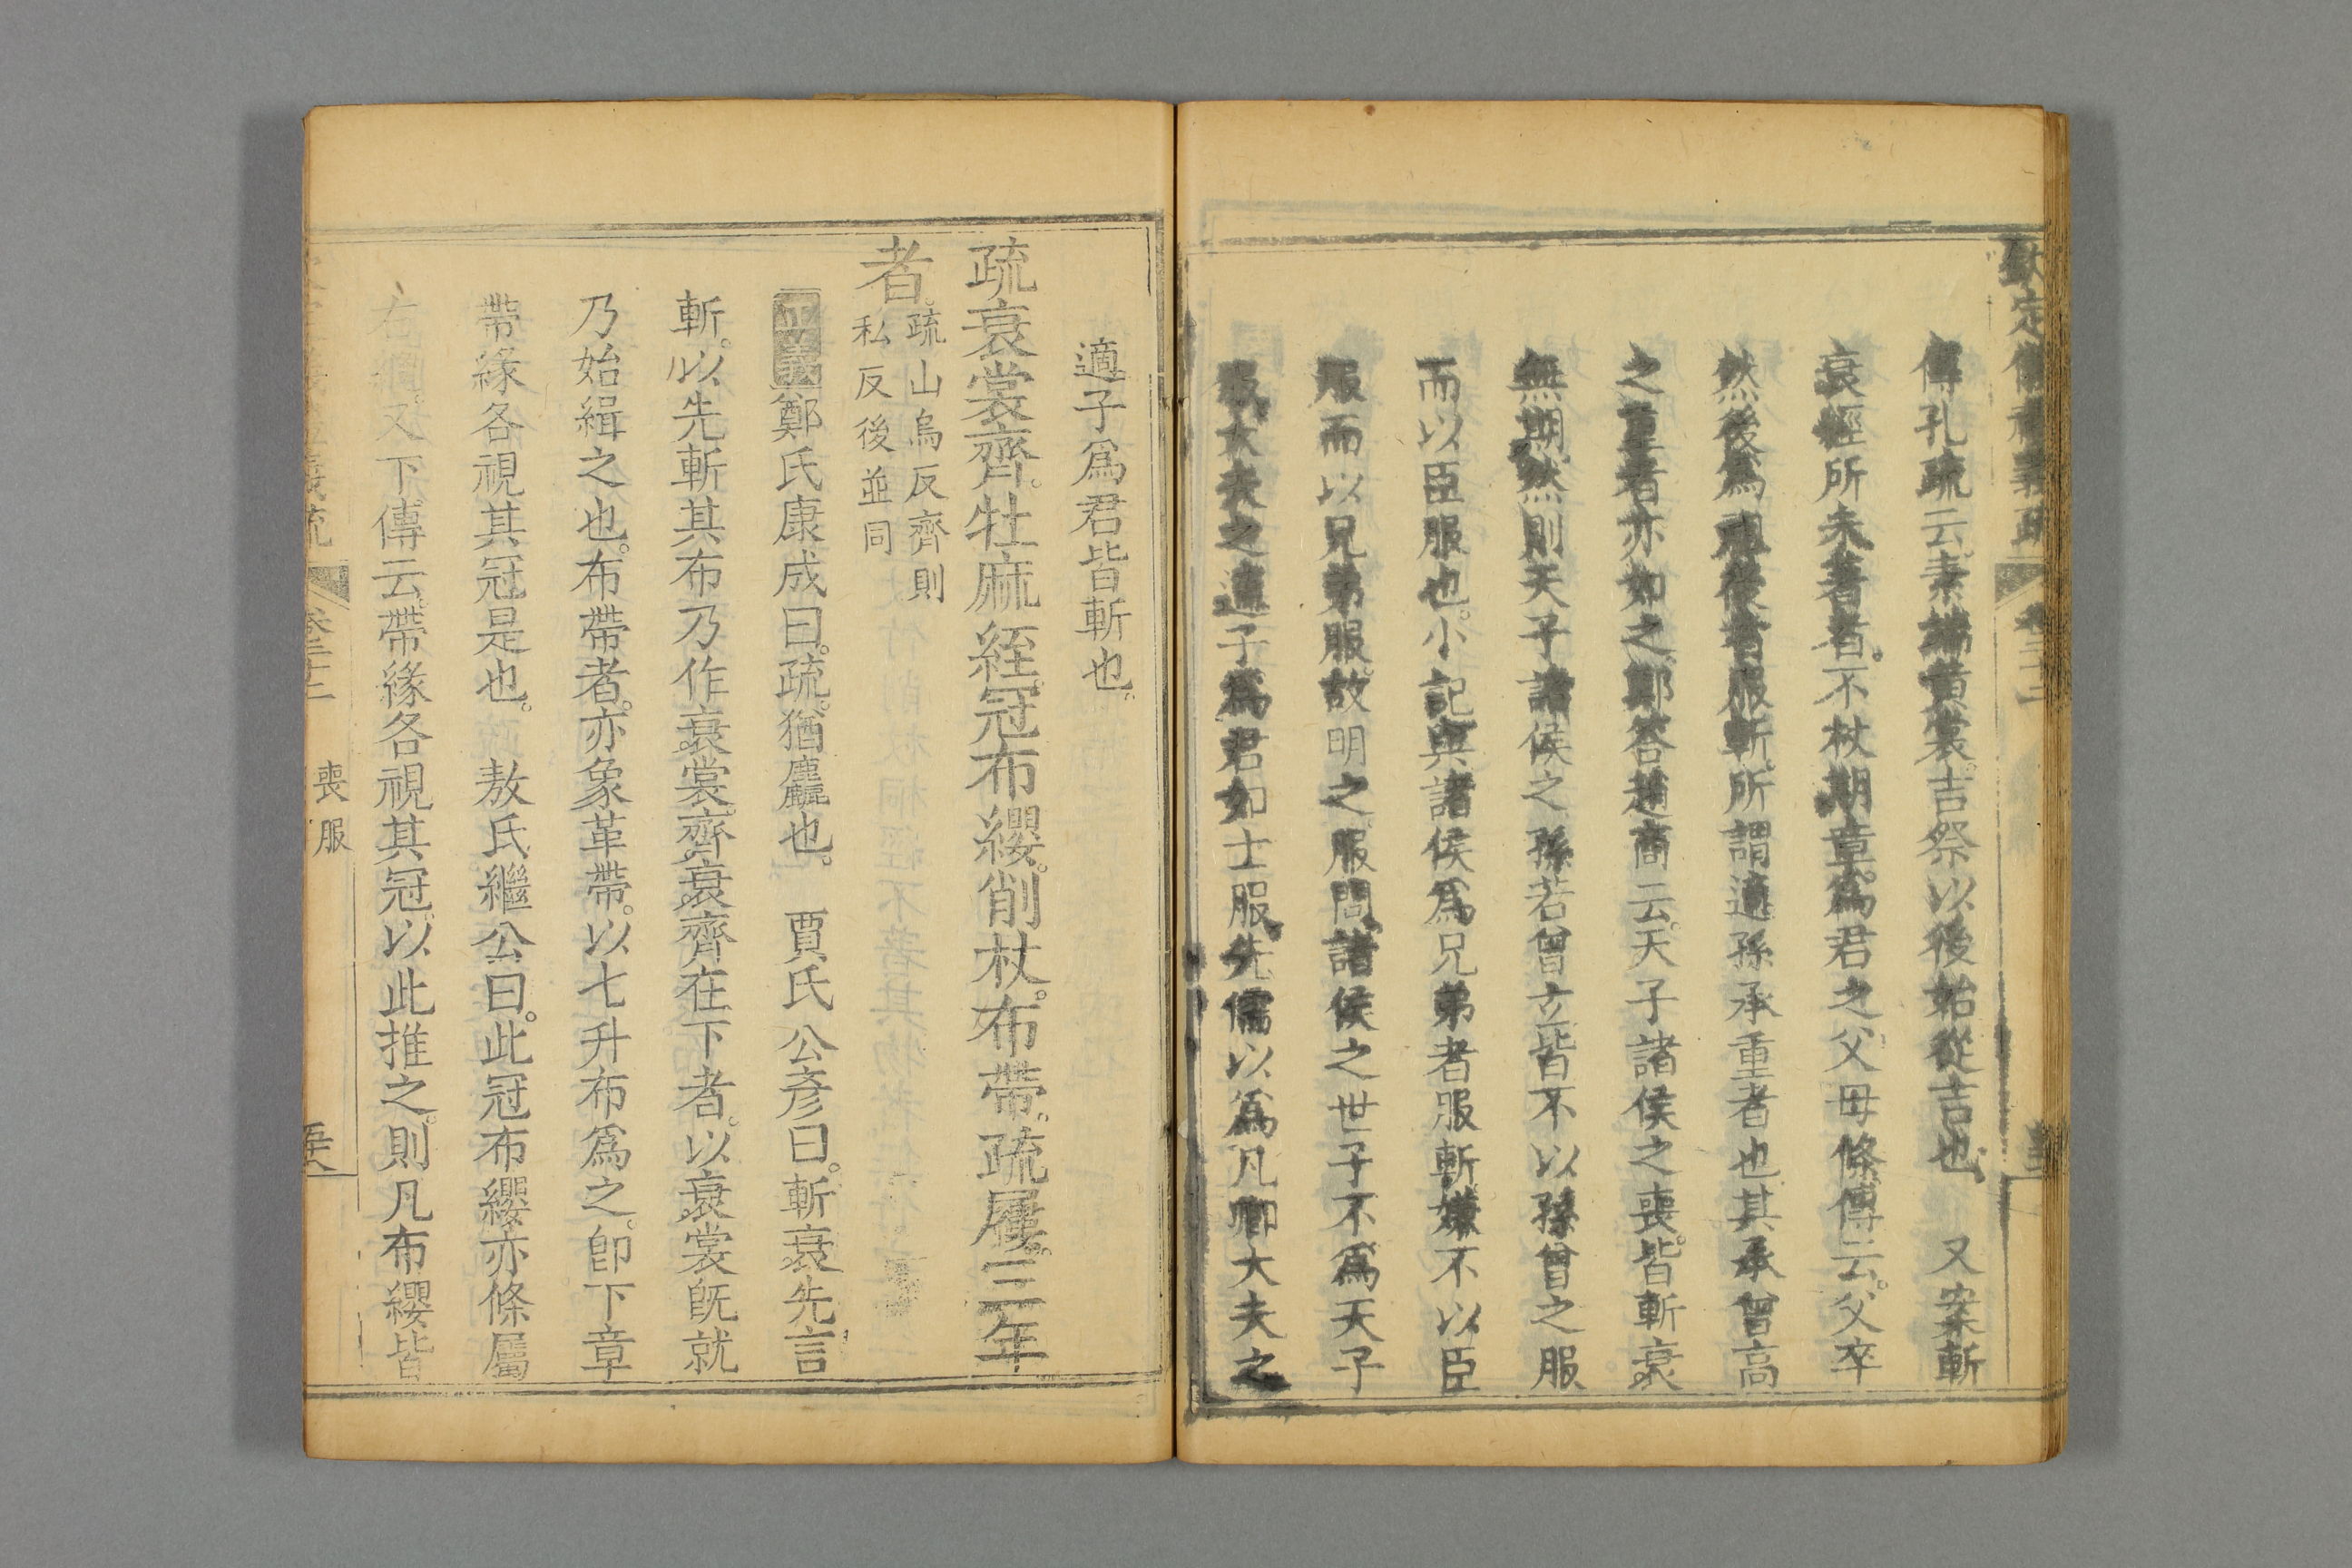 欽定儀禮義疏 卷二十二
傳孔疏云素端黃裳吉祭以後始從吉也 又案斬
衰經所未著者不杖期章爲君之父母條傳云父卒
然後爲祖後者服斬所謂適孫承重者也其承曾高
之重者亦如之鄭答趙商云天子諸侯之喪皆斬衰
無期然則天子諸侯之孫若曾立皆不以孫曾之服
而以臣服也小記與諸侯爲兄弟者服斬嫌不以臣
服而以兄弟服故明之服問諸侯之世子不爲天子
服大夫之適子爲君如士服先儒以爲凡卿大夫之
適子爲君皆斬也
疏衰裳齊牡麻絰冠布纓削杖布帶疏屨三年
者疏山烏反齊則
私反後並同
正義鄭氏康成曰疏猶麤也 賈氏公彥曰斬衰先言
斬以先斬其布乃作衰裳齊衰齊在下者以衰裳旣就
乃始緝之也布帶者亦象革帶以七升布爲之卽下章
帶緣各視其冠是也 敖氏繼公曰此冠布纓亦條屬
右縫又下傳云帶緣各視其冠以此推之則凡布纓皆
義疏 卷二十二 喪服